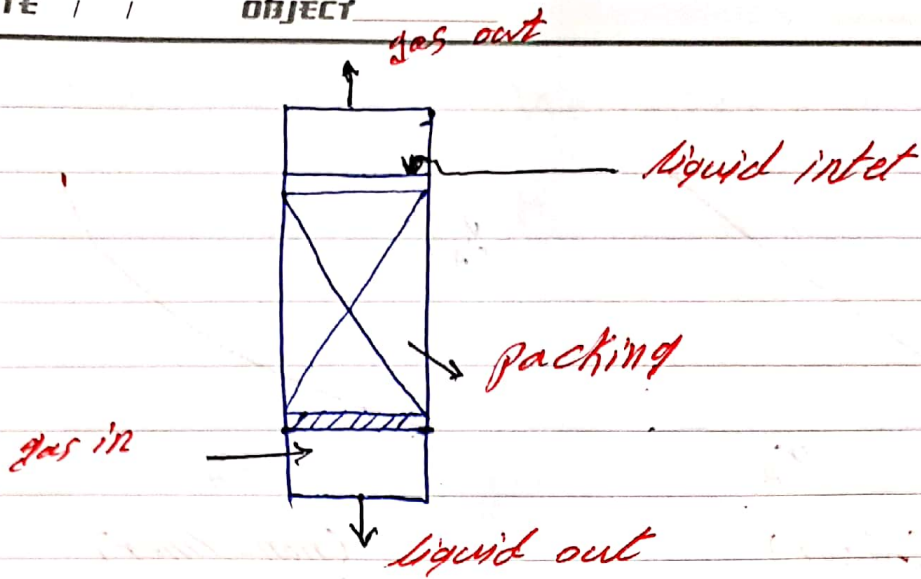 TE / /
OBJECT
gas out
liquid intet
packing
gas in
liquid out